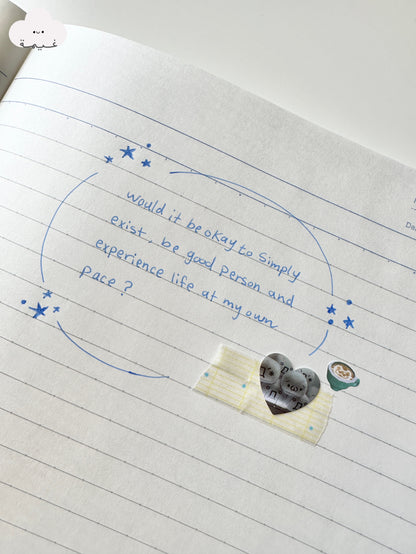 غيمة
would it be okay to simply
exist, be good person and
experience life at my own
pace?